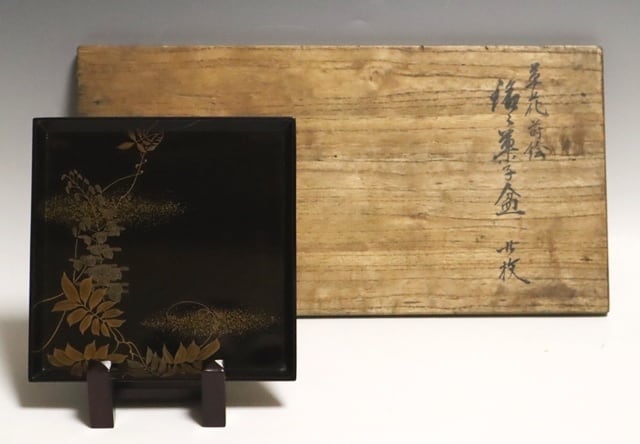 草花蒔絵
銘々菓子盆 廿枚